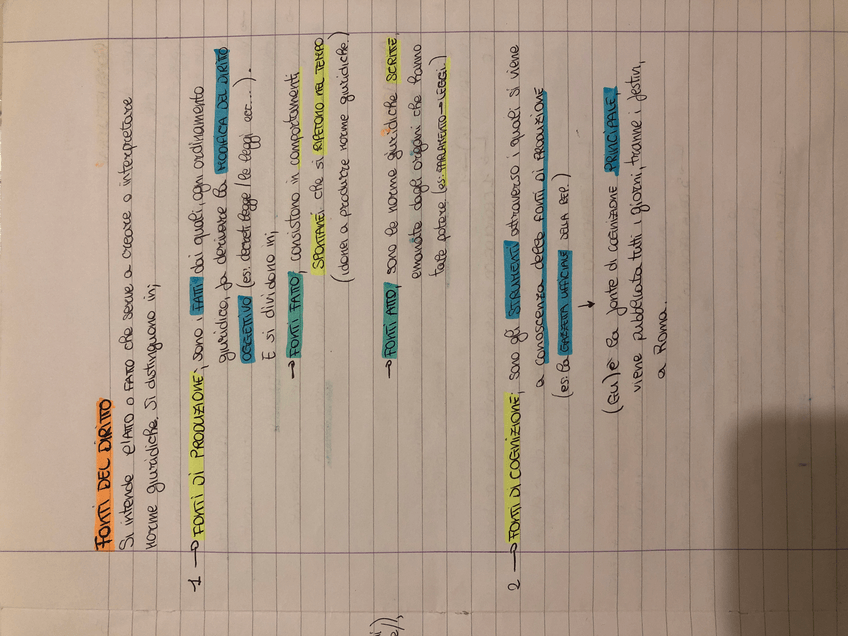 FONTI DEL DIRITTO
Si intende l'ATTO O FATTO che serve a creare o interpretare
norme giuridiche. Si distinguono in;
1 → FONTI DI PRODUZIONE; sono i FATTI dai quali, ogni ordinamento
giuridico, fa derivare la MODIFICA DEL DIRITTO
OGGETTIVO (es: decreti legge / le leggi ecc...).
E si dividono in;
→ FONTI FATTO, consistono in comportamenti
SPONTANEI che si RIPETONO NEL TEMPO
(idonei a produrre norme giuridiche.)
→ FONTI ATTO, sono le norme giuridiche SCRITTE,
emanate dagli organi che hanno
tale potere (es: PARLAMENTO → LEGGI.)
2 → FONTI DI COGNIZIONE; sono gli STRUMENTI attraverso i quali si viene
a conoscenza delle FONTI DI PRODUZIONE
(es: la GAZZETTA UFFICIALE DELLA REP.)
↓
(GU) è la fonte di cognizione PRINCIPALE,
viene pubblicata tutti i giorni, tranne i festivi,
a Roma.